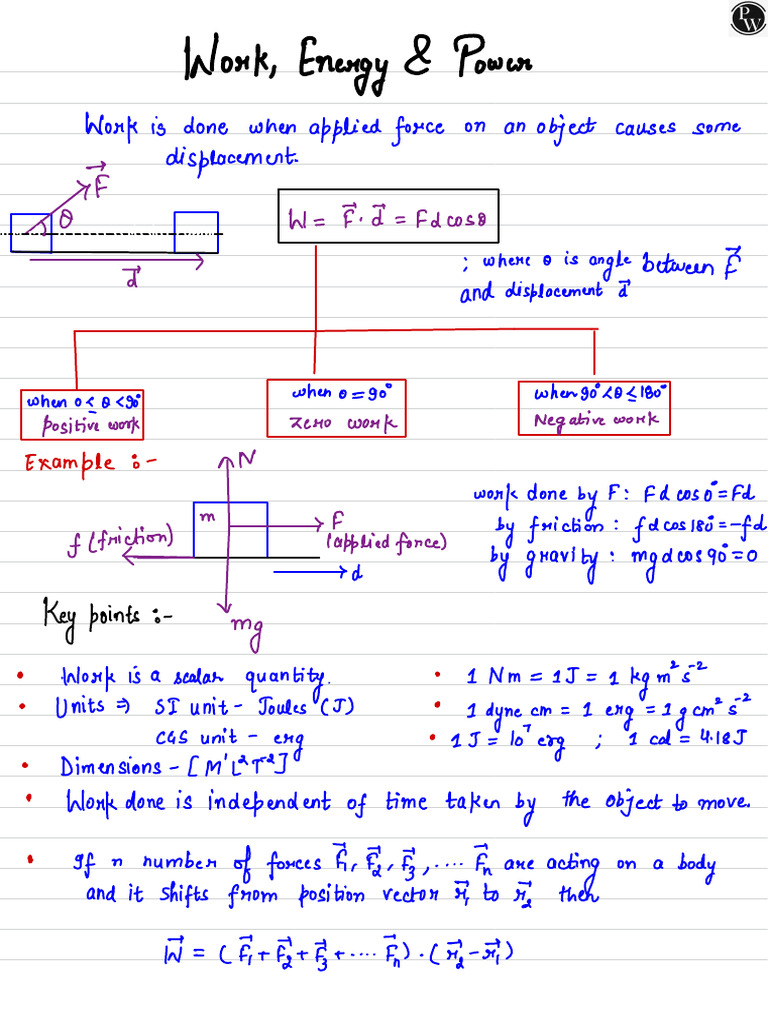 PW
Work, Energy & Power
Work is done when applied force on an object causes some
displacement.
F⃗
θ
d⃗
W = F⃗ · d⃗ = Fd cosθ
; where θ is angle between F⃗
and displacement d⃗
when 0 ≤ θ < 90°
positive work
when θ = 90°
zero work
when 90° < θ ≤ 180°
Negative work
Example :-
N
m
F
(applied force)
f (friction)
d
mg
work done by F : Fd cos 0° = Fd
by friction : fd cos 180° = -fd
by gravity : mgd cos 90° = 0
Key points :-
• Work is a scalar quantity.
• Units ⇒ SI unit - Joules (J)
CGS unit - erg
• Dimensions - [M¹L²T⁻²]
• 1 Nm = 1J = 1 kg m² s⁻²
• 1 dyne cm = 1 erg = 1 g cm² s⁻²
• 1J = 10⁷ erg ; 1 cal = 4.18J
• Work done is independent of time taken by the object to move.
• If n number of forces F⃗₁, F⃗₂, F⃗₃, .... F⃗n are acting on a body
and it shifts from position vector r⃗₁ to r⃗₂ then
W⃗ = (F⃗₁ + F⃗₂ + F⃗₃ + .... F⃗n) · (r⃗₂ - r⃗₁)